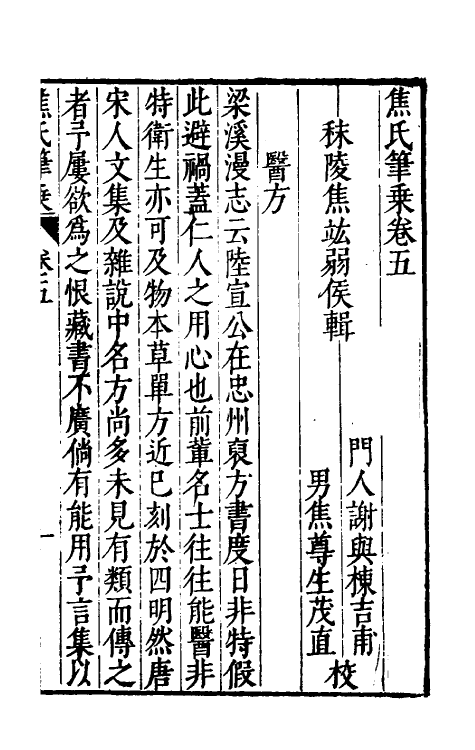 焦氏筆乗卷五
秣陵焦竑弱侯輯
門人謝與棟吉甫
男焦尊生茂直
校
醫方
梁溪漫志云陸宣公在忠州裒方書度日非特假
此避禍蓋仁人之用心也前輩名士往往能醫非
特衛生亦可及物本草單方近已刻於四明然唐
宋人文集及雜說中名方尚多未見有類而傳之
者予屢欲為之恨藏書不廣倘有能用予言集以
焦氏筆乗 卷五 一